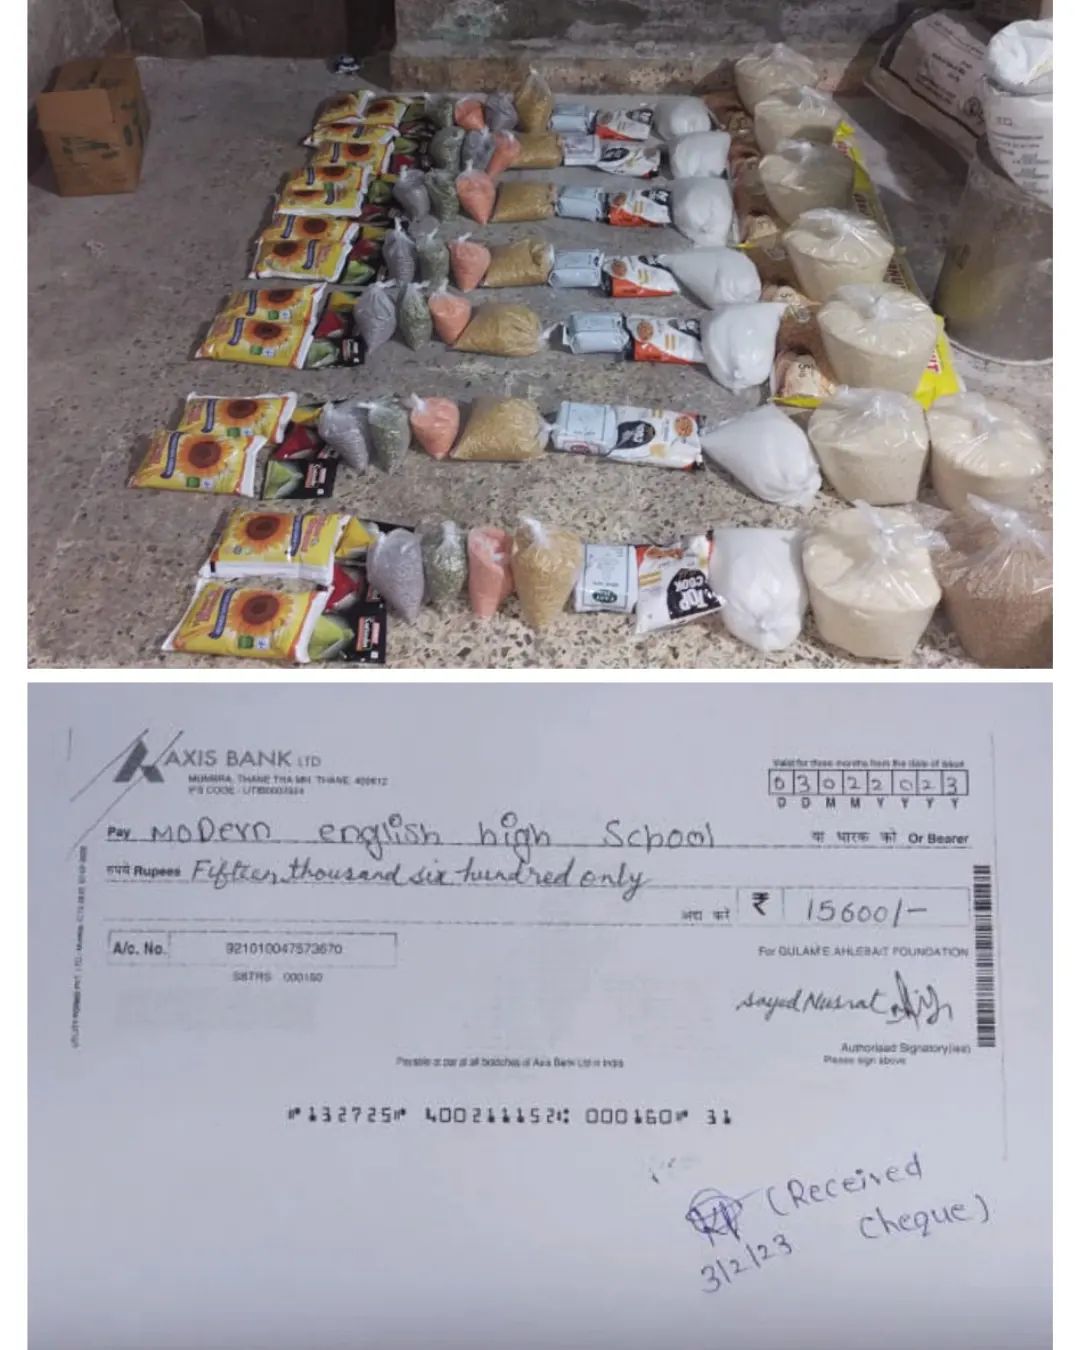 TOP
COOK
AXIS BANK LTD
MUMBRA, THANE
Valid for three months from the date of issue
03022023
D D M M Y Y Y Y
Pay MODern english high School या धारक को Or Bearer
रुपये Rupees Fifteen thousand six hundred only
अदा करें ₹ 15600/-
A/c. No. 921010047573670
SBTRS 000160
For GULAM E AHLEBAIT FOUNDATION
Sayed Nusrat
Authorised Signatory(ies)
Please sign above
Payable at par at all branches of Axis Bank Ltd in India
⑈132725⑈ 400211152⑆ 000160⑈ 31
(Received
Cheque)
3/2/23